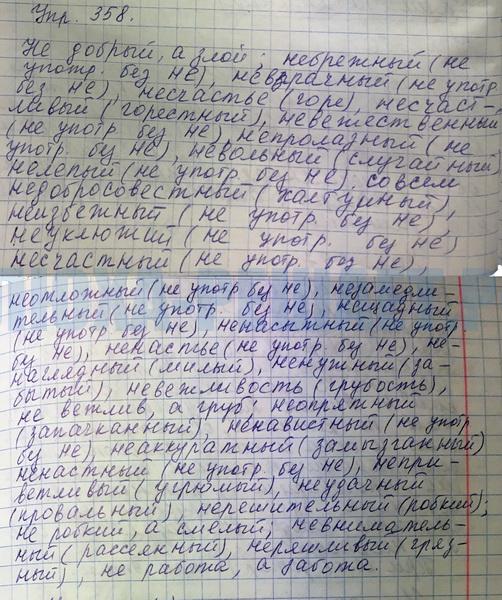 Упр. 358.
Не добрый, а злой; небрежный (не
употр. без не), невзрачный (не употр.
без не), несчастье (горе), несчаст-
ливый (горестный), невежественный
(не употр. без не), непролазный (не
употр. без не), невольный (случайный)
нелепый (не употр. без не), совсем
недобросовестный (халтурный),
неизбежный (не употр. без не),
неуклюжий (не употр. без не)
несчастный (не употр. без не),
неотложный (не употр. без не), незамедли-
тельный (не употр. без не), нещадный
(не употр. без не) ненасытный (не употр.
без не), ненастье (не употр. без не), не-
наглядный (милый), ненужный (за-
бытый), невежливость (грубость),
не вежлив, а груб; неопрятный
(запачканный), ненавистный (не употр.
без не), неаккуратный (замызганный)
ненастный (не употр. без не), непри-
ветливый (угрюмый), неудачный
(провальный), нерешительный (робкий);
не робкий, а смелый; невниматель-
ный (рассеянный), неряшливый (гряз-
ный), не работа, а забота.